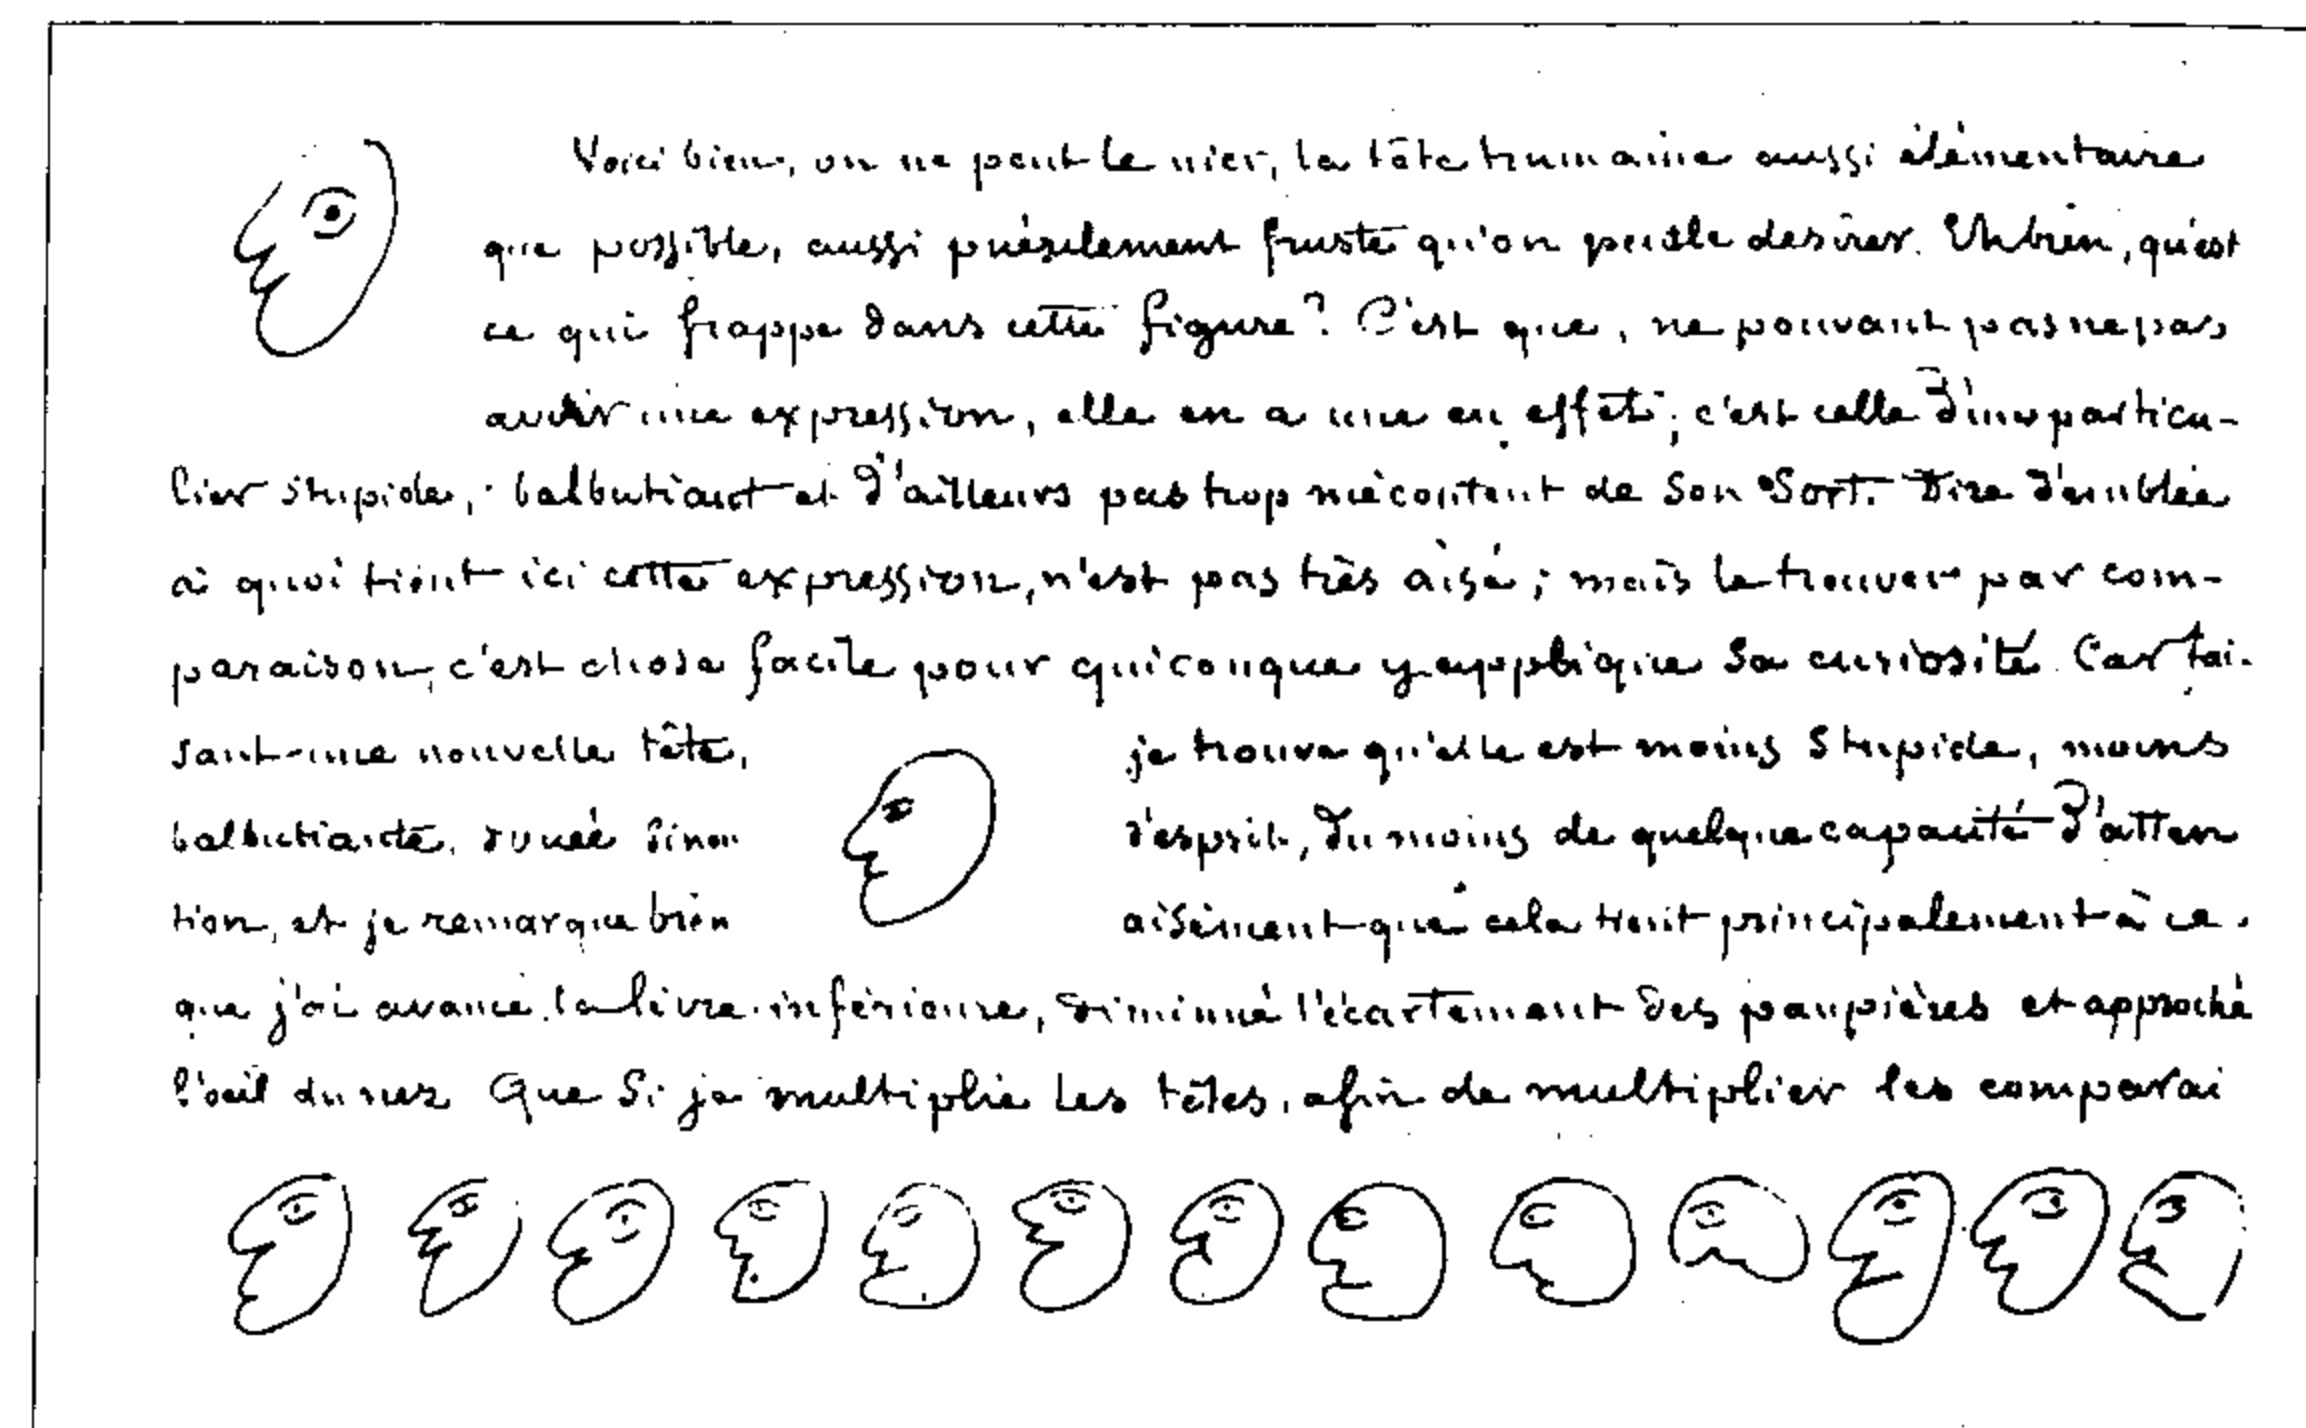 Voici bien, on ne peut le nier, la tête humaine aussi élémentaire
que possible, aussi puérilement fruste qu'on puisse desirer. Eh bien, qu'est
ce qui frappe dans cette figure? C'est que, ne pouvant pas ne pas
avoir une expression, elle en a une en effet; c'est celle d'un particu-
lier stupide, balbutiant et d'ailleurs pas trop mécontent de son sort. Dire d'emblée
à quoi tient ici cette expression, n'est pas très aisé; mais le trouver par com-
paraison, c'est chose facile pour quiconque y applique sa curiosité. Car fai-
sant une nouvelle tête, je trouve qu'elle est moins stupide, moins
balbutiante, douée sinon d'esprit, du moins de quelque capacité d'atten
tion, et je remarque bien aisément que cela tient principalement à ce
que j'ai avancé la lèvre inférieure, diminué l'écartement des paupières et approché
l'oeil du nez Que si je multiplie les têtes, afin de multiplier les comparai